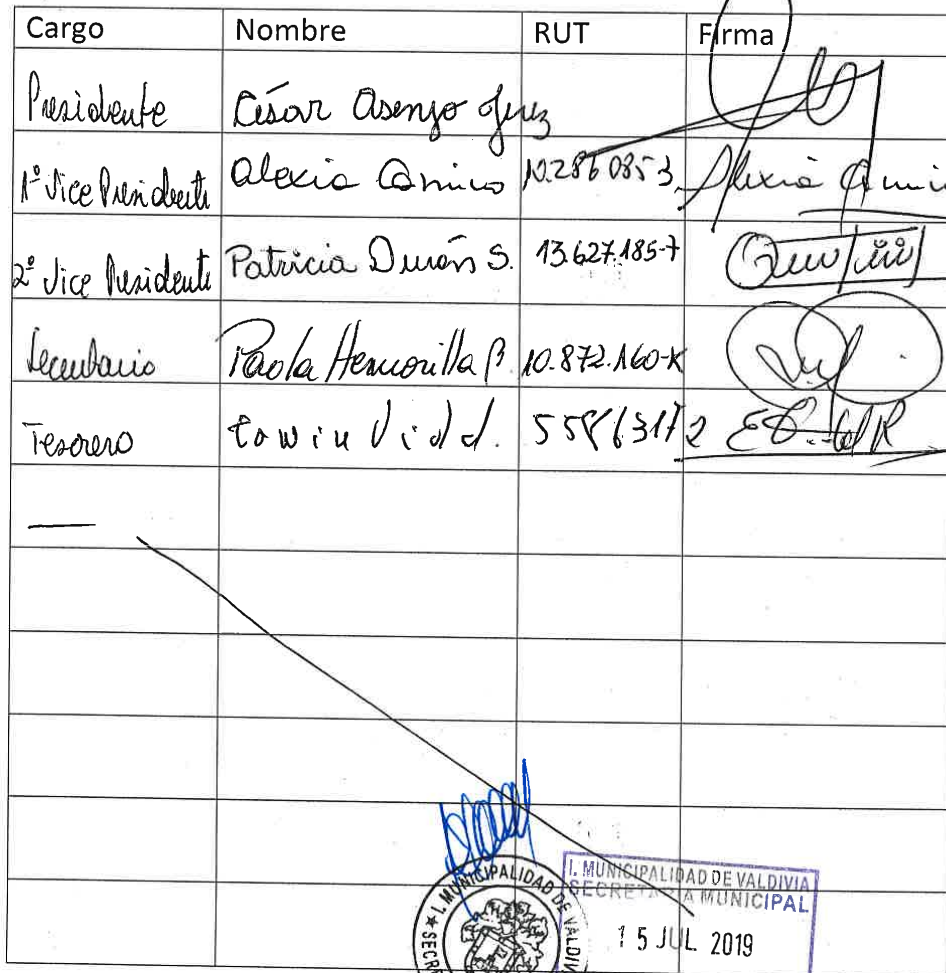 Cargo Nombre RUT Firma
Presidente César Asenjo
1º Vice Presidente Alexia Camino 10.286085-3 Alexia
2º Vice Presidente Patricia Durán S. 13.627.185-7
Secretario Paola Hermosilla B. 10.872.160-K
Tesorero Edwin Vidal. 55863172
I. MUNICIPALIDAD DE VALDIVIA
SECRETARIA MUNICIPAL
15 JUL. 2019
★ I. MUNICIPALIDAD DE VALDIV
★ SECR